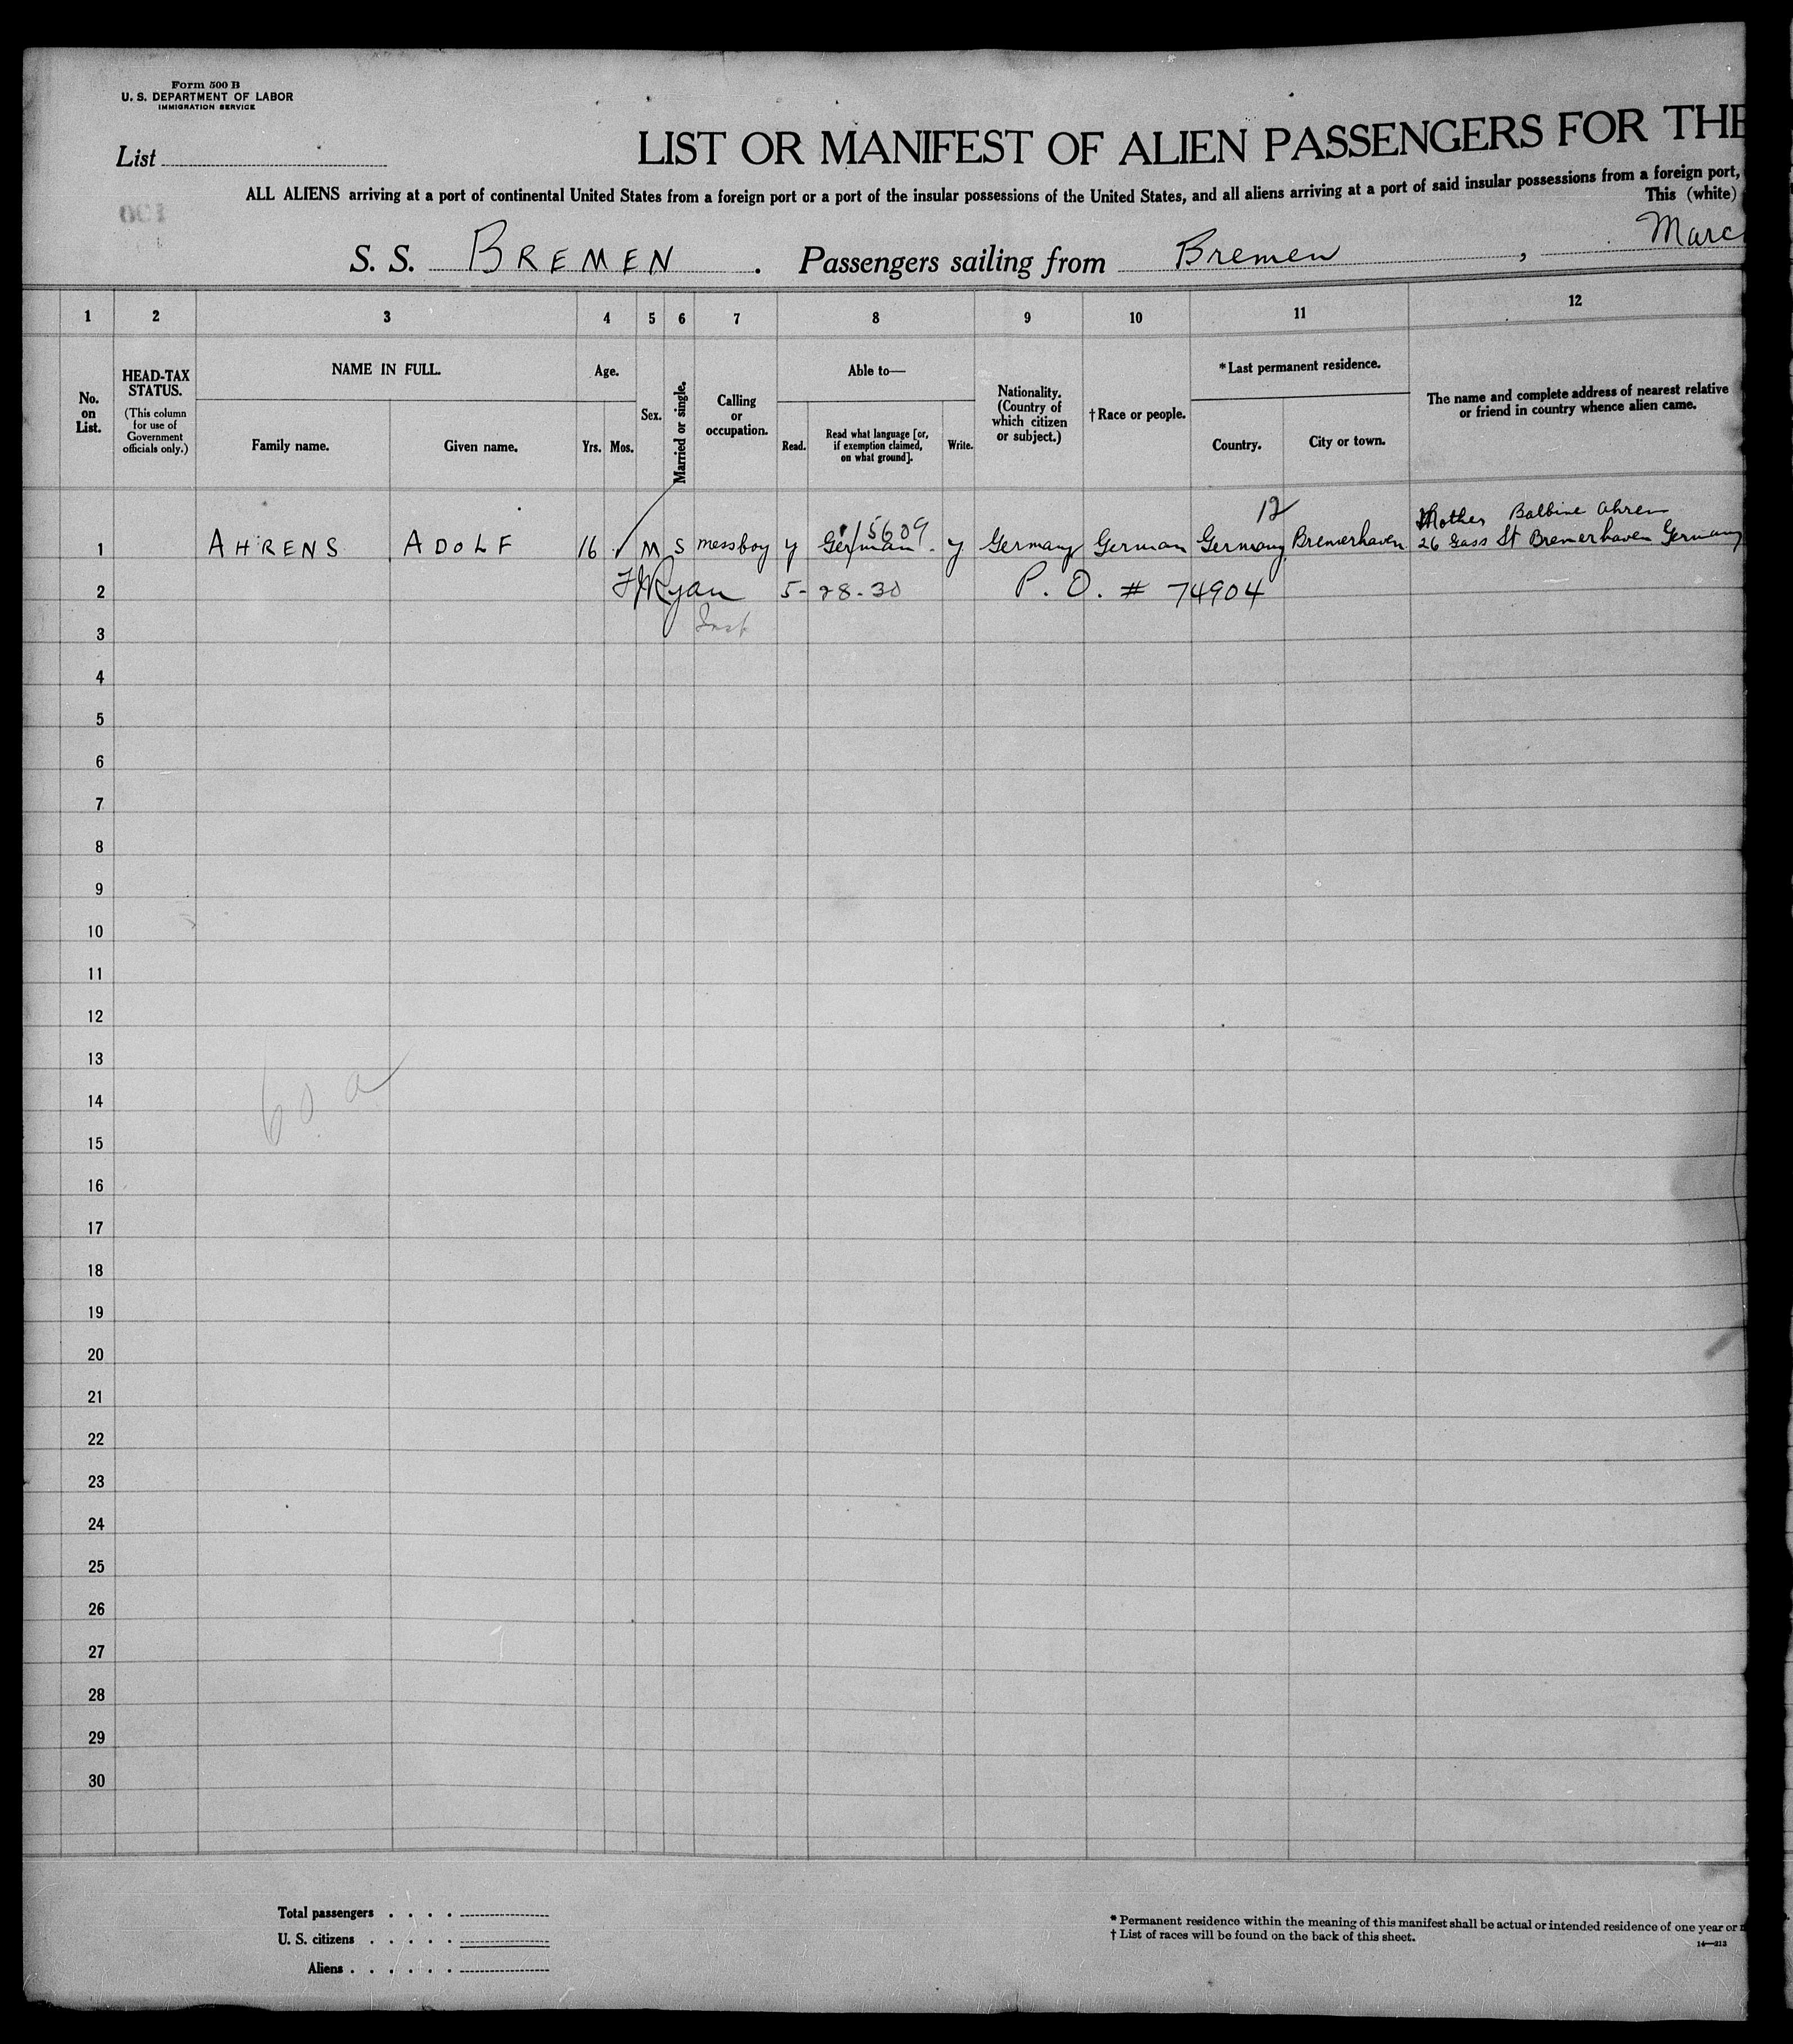 Form 500 B
U. S. DEPARTMENT OF LABOR
IMMIGRATION SERVICE
List
LIST OR MANIFEST OF ALIEN PASSENGERS FOR THE
ALL ALIENS arriving at a port of continental United States from a foreign port or a port of the insular possessions of the United States, and all aliens arriving at a port of said insular possessions from a foreign port,
This (white)
S. S. BREMEN . Passengers sailing from Bremen , Marc
1 2 3 4 5 6 7 8 9 10 11 12
No. on List.
HEAD-TAX STATUS.
(This column for use of Government officials only.)
NAME IN FULL.
Family name.
Given name.
Age.
Yrs. Mos.
Sex.
Married or single.
Calling or occupation.
Able to—
Read.
Read what language [or, if exemption claimed, on what ground].
Write.
Nationality. (Country of which citizen or subject.)
† Race or people.
* Last permanent residence.
Country.
City or town.
The name and complete address of nearest relative or friend in country whence alien came.
12
15609
Mother Balbine Ahren
1 AHRENS ADOLF 16 M S messboy y German y Germany German Germany Bremerhaven 26 St Bremerhaven Germany
2 Ryan 5-28-30 P. O. # 74904
3 Insp
4
5
6
7
8
9
10
11
12
13
60 a
14
15
16
17
18
19
20
21
22
23
24
25
26
27
28
29
30
Total passengers . . . .
U. S. citizens . . . . .
Aliens . . . . . .
* Permanent residence within the meaning of this manifest shall be actual or intended residence of one year or
† List of races will be found on the back of this sheet.
14—213